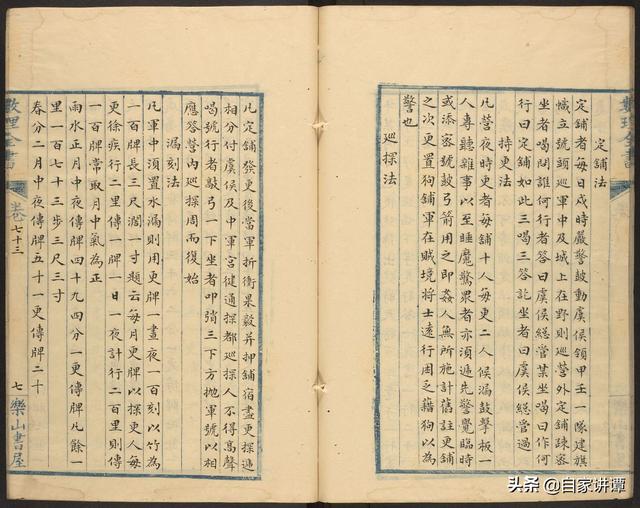 定鋪法
定鋪者每日戌時嚴警鼓動虞侯領甲壬一隊建旗
幟立號頭巡軍中及城上在野則巡營外定鋪疎宻
坐者喝問誰何行者答曰虞侯総管某坐喝曰作何
行曰定鋪如此三喝三答訖坐者曰虞侯総管過
持更法
凡營夜時更者每鋪十人每更二人候漏鼓擊板一
人專聽雜事以至睡魔驚衆者亦須遞先警覺臨時
或添宻號鼓弓箭用之即姦人無所施計舊註更鋪
之次更置狗鋪軍在賊境將士遠行困乏藉狗以為
警也
巡探法
凡定鋪發更後當軍折衝果毅并押鋪宿盡更探遞
相分付虞侯及中軍官健通探都巡探人不得髙聲
喝號行者敲弓一下坐者叩弰三下方抛軍號以相
應答營内巡探周而復始
漏刻法
凡軍中須置水漏則用更牌一晝夜一百刻以竹為
一百牌長三尺濶一寸題云每月更牌以探更人每
更徐疾行二里傳一牌一日一夜計行二百里則傳
一百牌常取月中氣為正
雨水正月中夜傳牌四十九四分一更傳牌凡餘一
里一百七十三步三尺三寸
春分二月中夜傳牌五十一更傳牌二十
數理全書
卷七十三
七
樂山書屋
头条 @自家讲谭